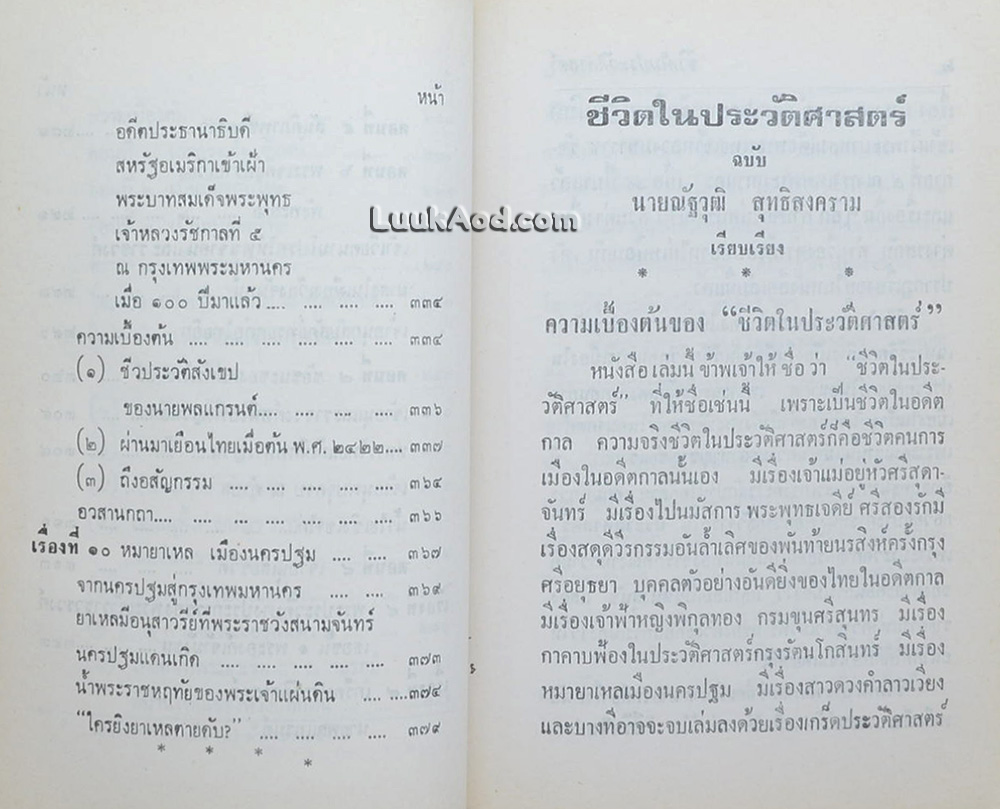 หน้า
อดีตประธานาธิบดี
สหรัฐอเมริกาเข้าเฝ้า
พระบาทสมเด็จพระพุทธ
เจ้าหลวงรัชกาลที่ ๕
ณ กรุงเทพพระมหานคร
เมื่อ ๑๐๐ ปีมาแล้ว .... .... .... ๓๓๔
ความเบื้องต้น .... .... .... .... .... ๓๓๔
(๑) ชีวประวัติสังเขป
ของนายพลแกรนต์.... .... .... .... ๓๓๖
(๒) ผ่านมาเยือนไทยเมื่อต้น พ.ศ. ๒๔๒๒.... ๓๓๗
(๓) ถึงอสัญกรรม .... .... .... .... ๓๖๔
อวสานกถา.... .... .... .... .... .... ๓๖๖
เรื่องที่ ๑๐ หมายาเหล เมืองนครปฐม .... .... ๓๖๗
จากนครปฐมสู่กรุงเทพมหานคร .... .... ๓๖๙
ยาเหลมีอนุสาวรีย์ที่พระราชวังสนามจันทร์
นครปฐมแดนเกิด .... .... .... .... .... ๓๗๓
น้ำพระราชหฤทัยของพระเจ้าแผ่นดิน .... .... ๓๗๔
“ใครยิงยาเหลตายดับ?” .... .... .... .... ๓๗๙
* * * *
ชีวิตในประวัติศาสตร์
ฉบับ
นายณัฐวุฒิ สุทธิสงคราม
เรียบเรียง
* * *
ความเบื้องต้นของ “ชีวิตในประวัติศาสตร์”
หนังสือเล่มนี้ ข้าพเจ้าให้ชื่อว่า “ชีวิตในประ-
วัติศาสตร์” ที่ให้ชื่อเช่นนี้ เพราะเป็นชีวิตในอดีต
กาล ความจริงชีวิตในประวัติศาสตร์ก็คือชีวิตคนการ
เมืองในอดีตกาลนั้นเอง มีเรื่องเจ้าแม่อยู่หัวศรีสุดา-
จันทร์ มีเรื่องไปนมัสการ พระพุทธเจดีย์ ศรีสองรักมี
เรื่องสดุดีวีรกรรมอันล้ำเลิศของพันท้ายนรสิงห์ครั้งกรุง
ศรีอยุธยา บุคคลตัวอย่างอันดียิ่งของไทยในอดีตกาล
มีเรื่องเจ้าฟ้าหญิงพิกุลทอง กรมขุนศรีสุนทร มีเรื่อง
กาคาบฟ้องในประวัติศาสตร์กรุงรัตนโกสินทร์ มีเรื่อง
หมายาเหลเมืองนครปฐม มีเรื่องสาวดวงคำลาวเวียง
และบางทีอาจจะจบเล่มลงด้วยเรื่องเกร็ดประวัติศาสตร์
LuukAod.com